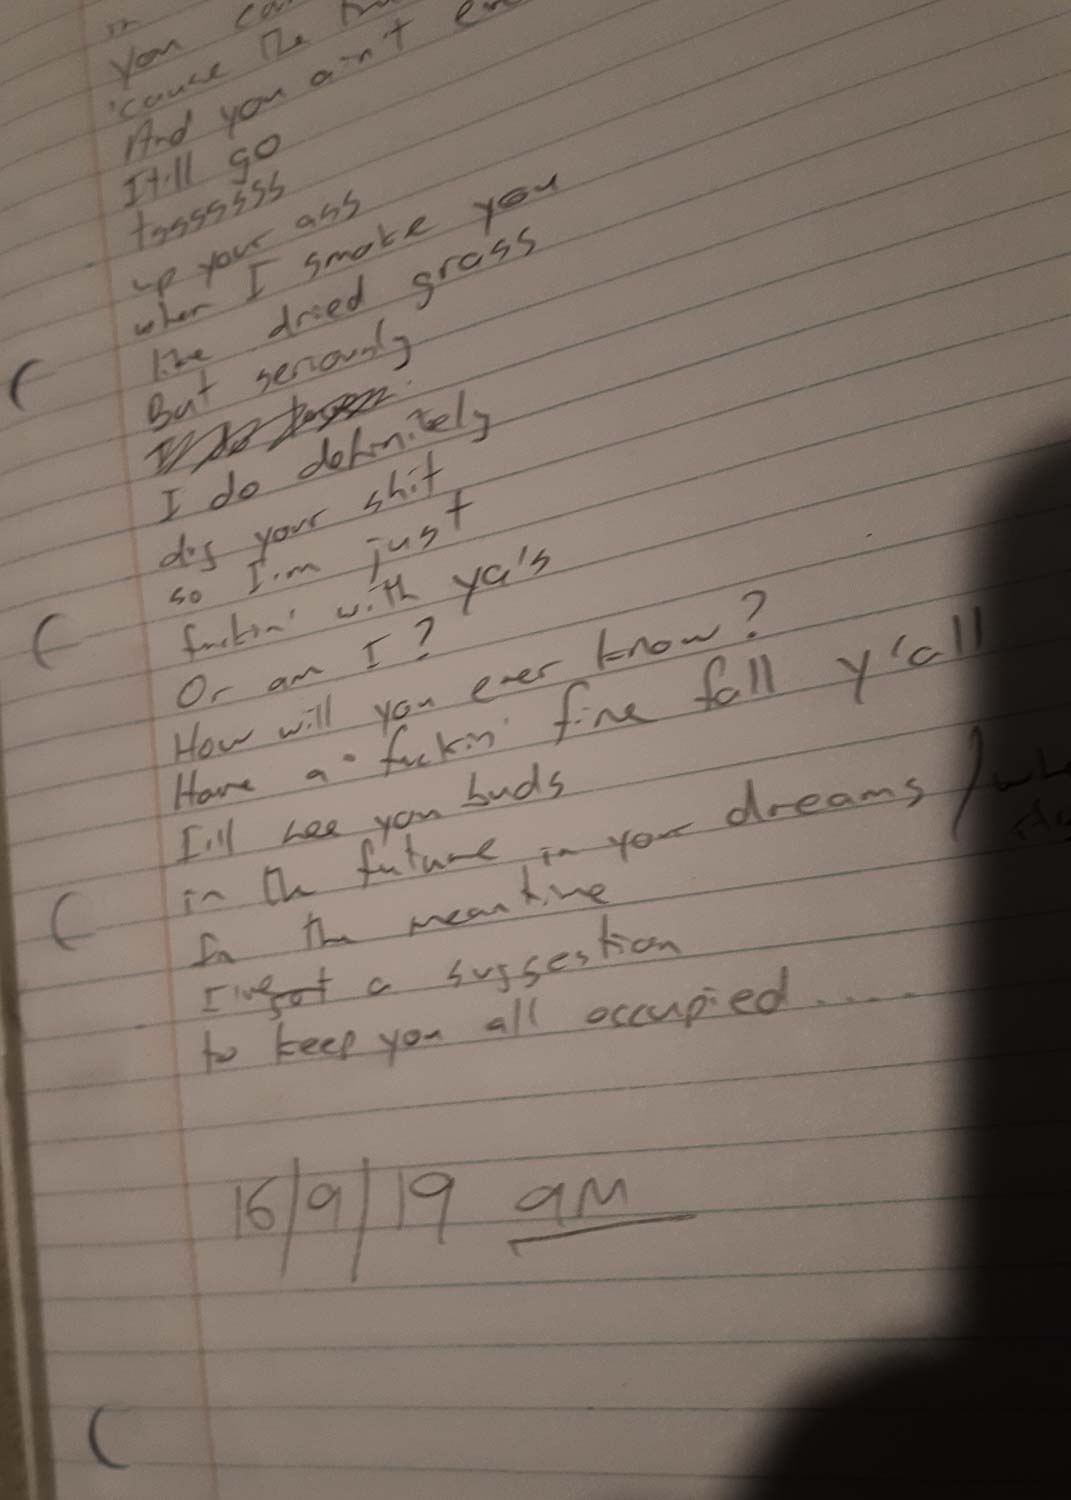 you
'cause the
And you ain't
It'll go
tssssssss
up your ass
when I smoke you
like dried grass
But seriously
I do definitely
dig your shit
so I'm just
fuckin' with ya's
Or am I?
How will you ever know?
Have a fuckin' fine fall y'all
I'll see you buds
in the future in your dreams /
In the meantime
I've got a suggestion
to keep you all occupied.....
16/9/19 am